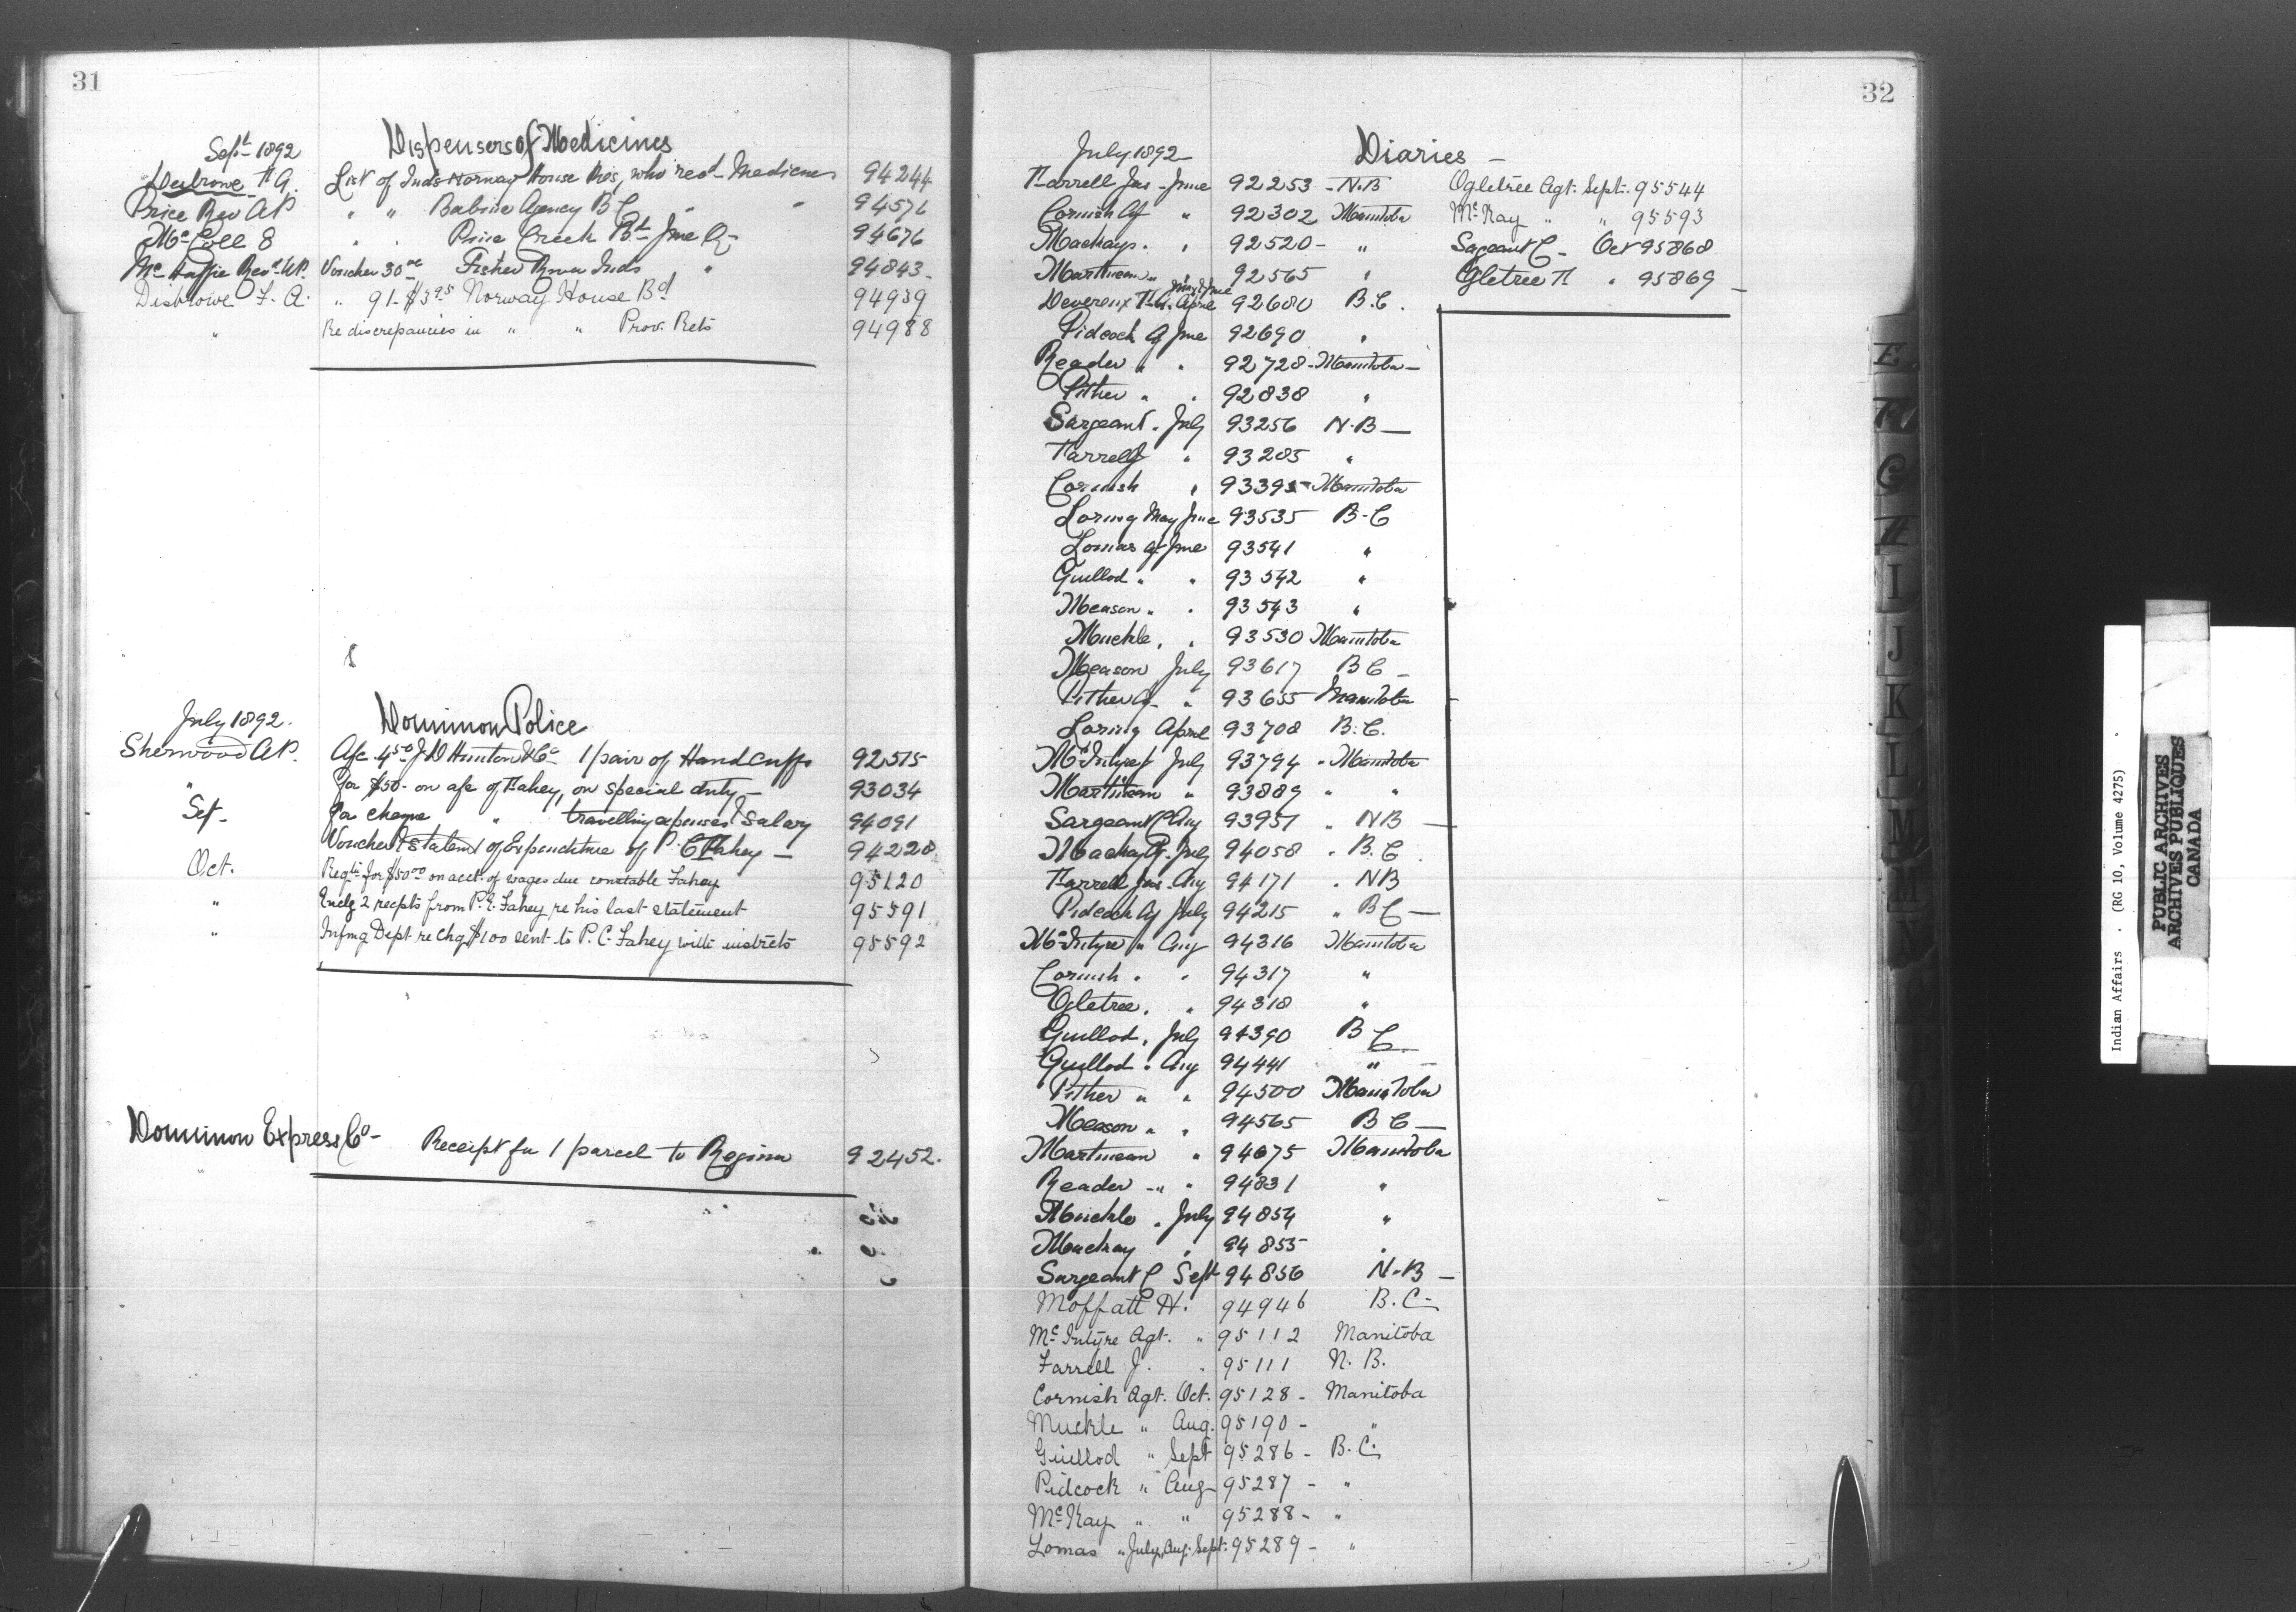 31
Dispensers of Medicines
Sept 1892
Disbrowe F A. List of Inds Norway House Res, who recd Medicines 94244
Price Rev AP " " Babine Agency BC " " 94576
Mc Coll E " " Pine Creek Bd June Q 94676
Mc Haffie Revd WP. Voucher 30 00 Fisher River Inds " 94843
Disbrowe F. A. " 91- $3 95 Norway House Bd 94939
" Re discrepancies in " " Prov. Rets 94988
Dominion Police
July 1892.
Sherwood AP. A/c 4 50 J D Hunton & Co 1 pair of Hand cuffs 92515
" for $50- on a/c of Fahey, on special duty - 93034
Sept- for cheque " travelling expenses & Salary 94091
Voucher & Statemt of Expenditure of P. C Fahey - 94228
Oct. Reqtn for $50 00 on acct. of wages due constable Fahey 95120
" Enclg 2 recpts from P.C. Fahey re his last statement 95591
" Infmg Dept re Chq $100 sent to P. C. Fahey with instrcts 95592
Dominion Express Co- Receipt for 1 parcel to Regina 92452.
32
July 1892 Diaries -
Farrell Jas - June 92253 - N.B
Cornish Ag " 92302 Manitoba
Mackay. " 92520 - "
Martineau " 92565 "
Devereux F.A. April May & June 92680 B.C.
Pidcock Ag June 92690 "
Reader " " 92728 - Manitoba -
Pither " " 92838 "
Sargeant " July 93256 N.B -
Farrell J " 93285 "
Cornish " 93395 - Manitoba
Loring May June 93535 B-C
Lomas Ag June 93541 "
Guillod " " 93542 "
Meason " " 93543 "
Muckle " " 93530 Manitoba
Meason July 93617 B C -
Pither Ag - " 93655 Manitoba
Loring April 93708 B.C.
McIntyre July 93794 " Manitoba
Martineau " 93889 " "
Sargeant C Aug 93957 " NB -
Mackay Ag. July 94058 " B.C.
Farrell Jas - Aug 94171 " NB
Pidcock Ag July 94215 " B C -
McIntyre " Aug 94316 Manitoba
Cornish " " 94317 "
Ogletree " " 94318 "
Guillod " July 94390 B C
Guillod " Aug 94441 "
Pither " " 94500 Manitoba
Meason " " 94565 B C -
Martineau " 94675 Manitoba
Reader " " 94831 "
Muckle " July 94854 "
Mackay " 94855 "
Sargeant C Sept 94856 N-B -
Moffatt H. 94946 B.C-
McIntyre Agt. " 95112 Manitoba
Farrell J. " 95111 N. B.
Cornish Agt. Oct. 95128 - Manitoba
Muckle " Aug. 95190 - "
Guillod " Sept 95286 - B.C.
Pidcock " Aug 95287 - "
McKay " " 95288 - "
Lomas " July, Aug. Sept. 95289 - "
Ogletree Agt. Sept. 95544
McKay " " 95593
Sargeant C - Oct 95868
Ogletree A " 95869 -
E
F
G
H
I
J
K
L
M
Indian Affairs . (RG 10, Volume 4275)
PUBLIC ARCHIVES
ARCHIVES PUBLIQUES
CANADA